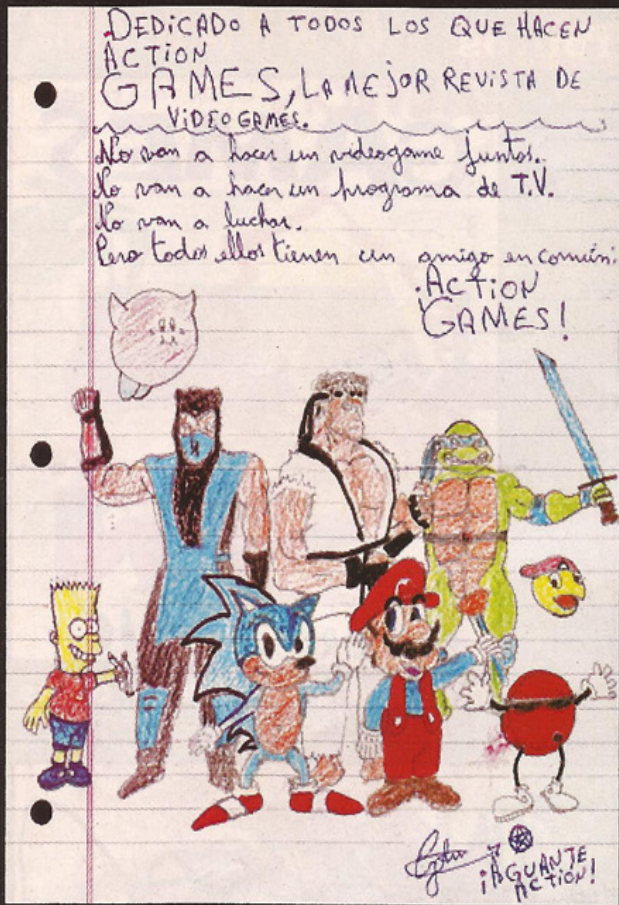 DEDICADO A TODOS LOS QUE HACEN
ACTION
GAMES, LA MEJOR REVISTA DE
VIDEOGAMES.
No van a hacer un videogame juntos.
No van a hacer un programa de T.V.
No van a luchar.
Pero todos ellos tienen un amigo en común:
ACTION
GAMES!
¡AGUANTE
ACTION!